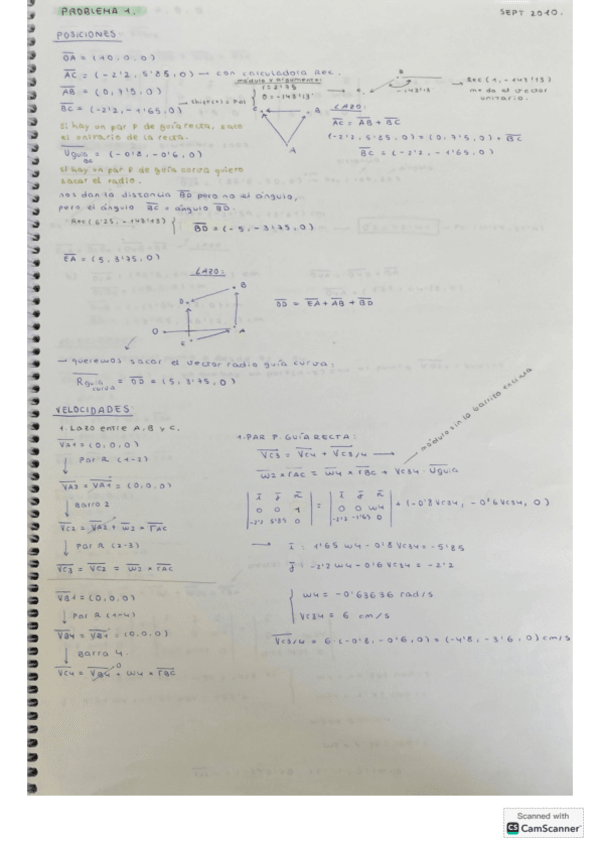 PROBLEMA 1.
SEPT 2010.
POSICIONES
OA = (10, 0, 0)
AC = (-2'2, 5'85, 0) → con calculadora Rec.
AB = (0, 7'5, 0)
BC = (-2'2, -1'65, 0) → Shift + 1 = Pol
módulo y argumento
r = 2'75
θ = -143'13
C
B
A
B
C
-143'13
Rec (1, -143'13)
me da el vector unitario.
LAZO:
AC = AB + BC
(-2'2, 5'85, 0) = (0, 7'5, 0) + BC
BC = (-2'2, -1'65, 0)
Si hay un par P de guía recta, saco
el unitario de la recta.
Uguia BC = (-0'8, -0'6, 0)
Si hay un par P de guía curva quiero
sacar el radio.
nos dan la distancia BD pero no el ángulo,
pero el ángulo BC = ángulo BD.
Rec (6'25, -143'13)
BD = (-5, -3'75, 0)
EA = (5, 3'75, 0)
LAZO:
B
D
O
A
E
ED = EA + AB + BD
→ queremos sacar el vector radio guía curva:
Rguia curva = ED = (5, 3'75, 0)
VELOCIDADES:
1. Lazo entre A, B y C.
VA1 = (0, 0, 0)
Par R (1-2)
VA2 = VA1 = (0, 0, 0)
Barra 2
VC2 = VA2 + w2 × rAC
Par R (2-3)
VC3 = VC2 = w2 × rAC
VB1 = (0, 0, 0)
Par R (1-4)
VB4 = VB1 = (0, 0, 0)
Barra 4.
VC4 = VB4 + w4 × rBC
1. PAR P. GUÍA RECTA:
VC3 = VC4 + VC3/4 → módulo sin la barrita encima
w2 × rAC = w4 × rBC + VC34 · Uguia
i j k
0 0 1
-2'2 5'85 0
=
i j k
0 0 w4
-2'2 -1'65 0
+ (-0'8 VC34, -0'6 VC34, 0)
→ i: 1'65 w4 - 0'8 VC34 = -5'85
j: -2'2 w4 - 0'6 VC34 = -2'2
w4 = -0'63636 rad/s
VC34 = 6 cm/s
VC3/4 = 6 · (-0'8, -0'6, 0) = (-4'8, -3'6, 0) cm/s
Scanned with
CS CamScanner